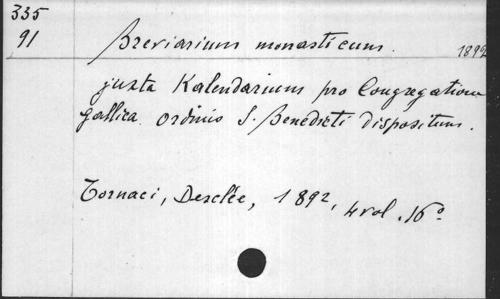 335
91
Breviarium monasticum.
1892
juxta Kalendarium pro Congregatione
gallica ordinis S. Benedicti dispositum.
Tornaci, Desclée, 1892, 4 vol. 16º